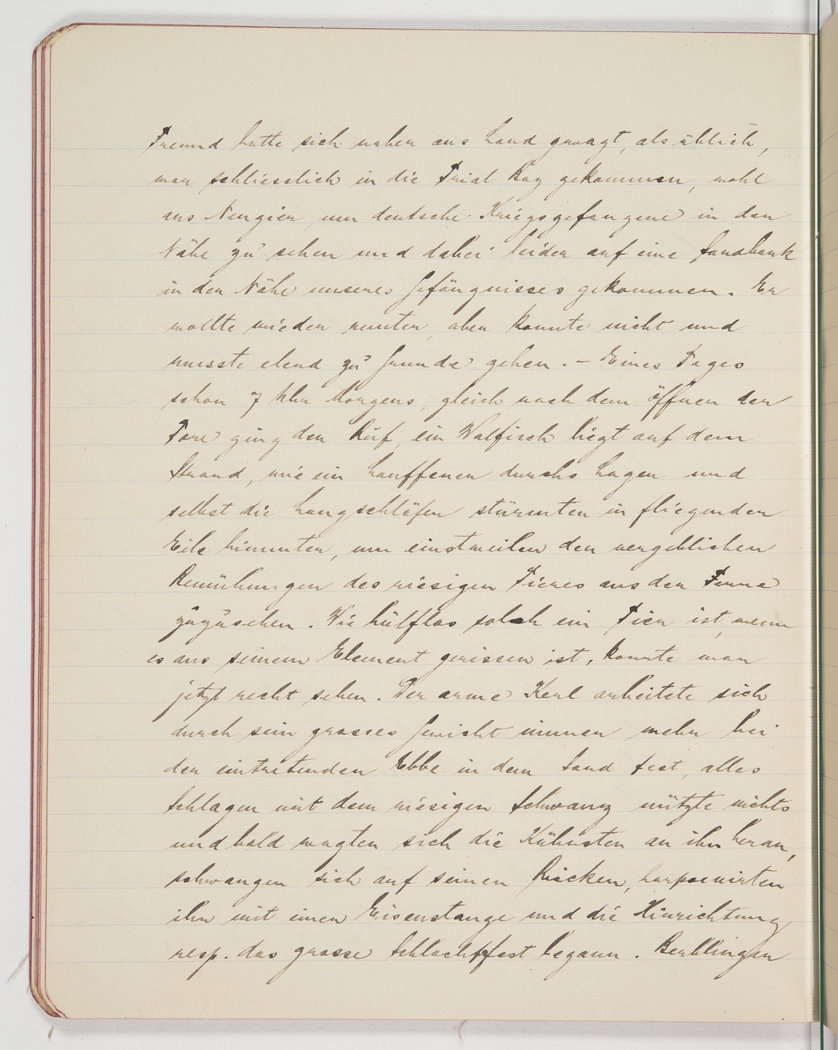 Freund hatte sich näher ans Land gewagt, als üblich,
war schliesslich in die Trial Bay gekommen, wohl
aus Neugier, um deutsche Kriegsgefangene in der
Nähe zu sehen und dabei leider auf eine Sandbank
in der Nähe unseres Gefängnisses gekommen. Er
wollte wieder runter, aber konnte nicht und
musste elend zu Grunde gehen. – Eines Tages
schon 7 Uhr Morgens, gleich nach dem öffnen der
Tore ging der Ruf, ein Walfisch liegt auf dem
Strand, wie ein Lauffeuer durchs Lager und
selbst die Langschläfer stürmten in fliegender
Eile hinunter, um einstweilen den vergeblichen
Bemühungen des riesigen Tieres aus der Ferne
zuzusehen. Wie hülflos solch ein Tier ist, wenn
es aus seinem Element gerissen ist, konnte man
jetzt recht sehen. Der arme Kerl arbeitete sich
durch sein grosses Gewicht immer mehr bei
der eintretenden Ebbe in dem Sand fest, alles
Schlagen mit dem riesigen Schwanz nützte nichts
und bald wagten sich die Kühnsten an ihn heran,
schwangen sich auf seinen Rücken, harpunirten
ihn mit einer Eisenstange und die Hinrichtung
resp. das grosse Schlachtfest begann. Berblinger